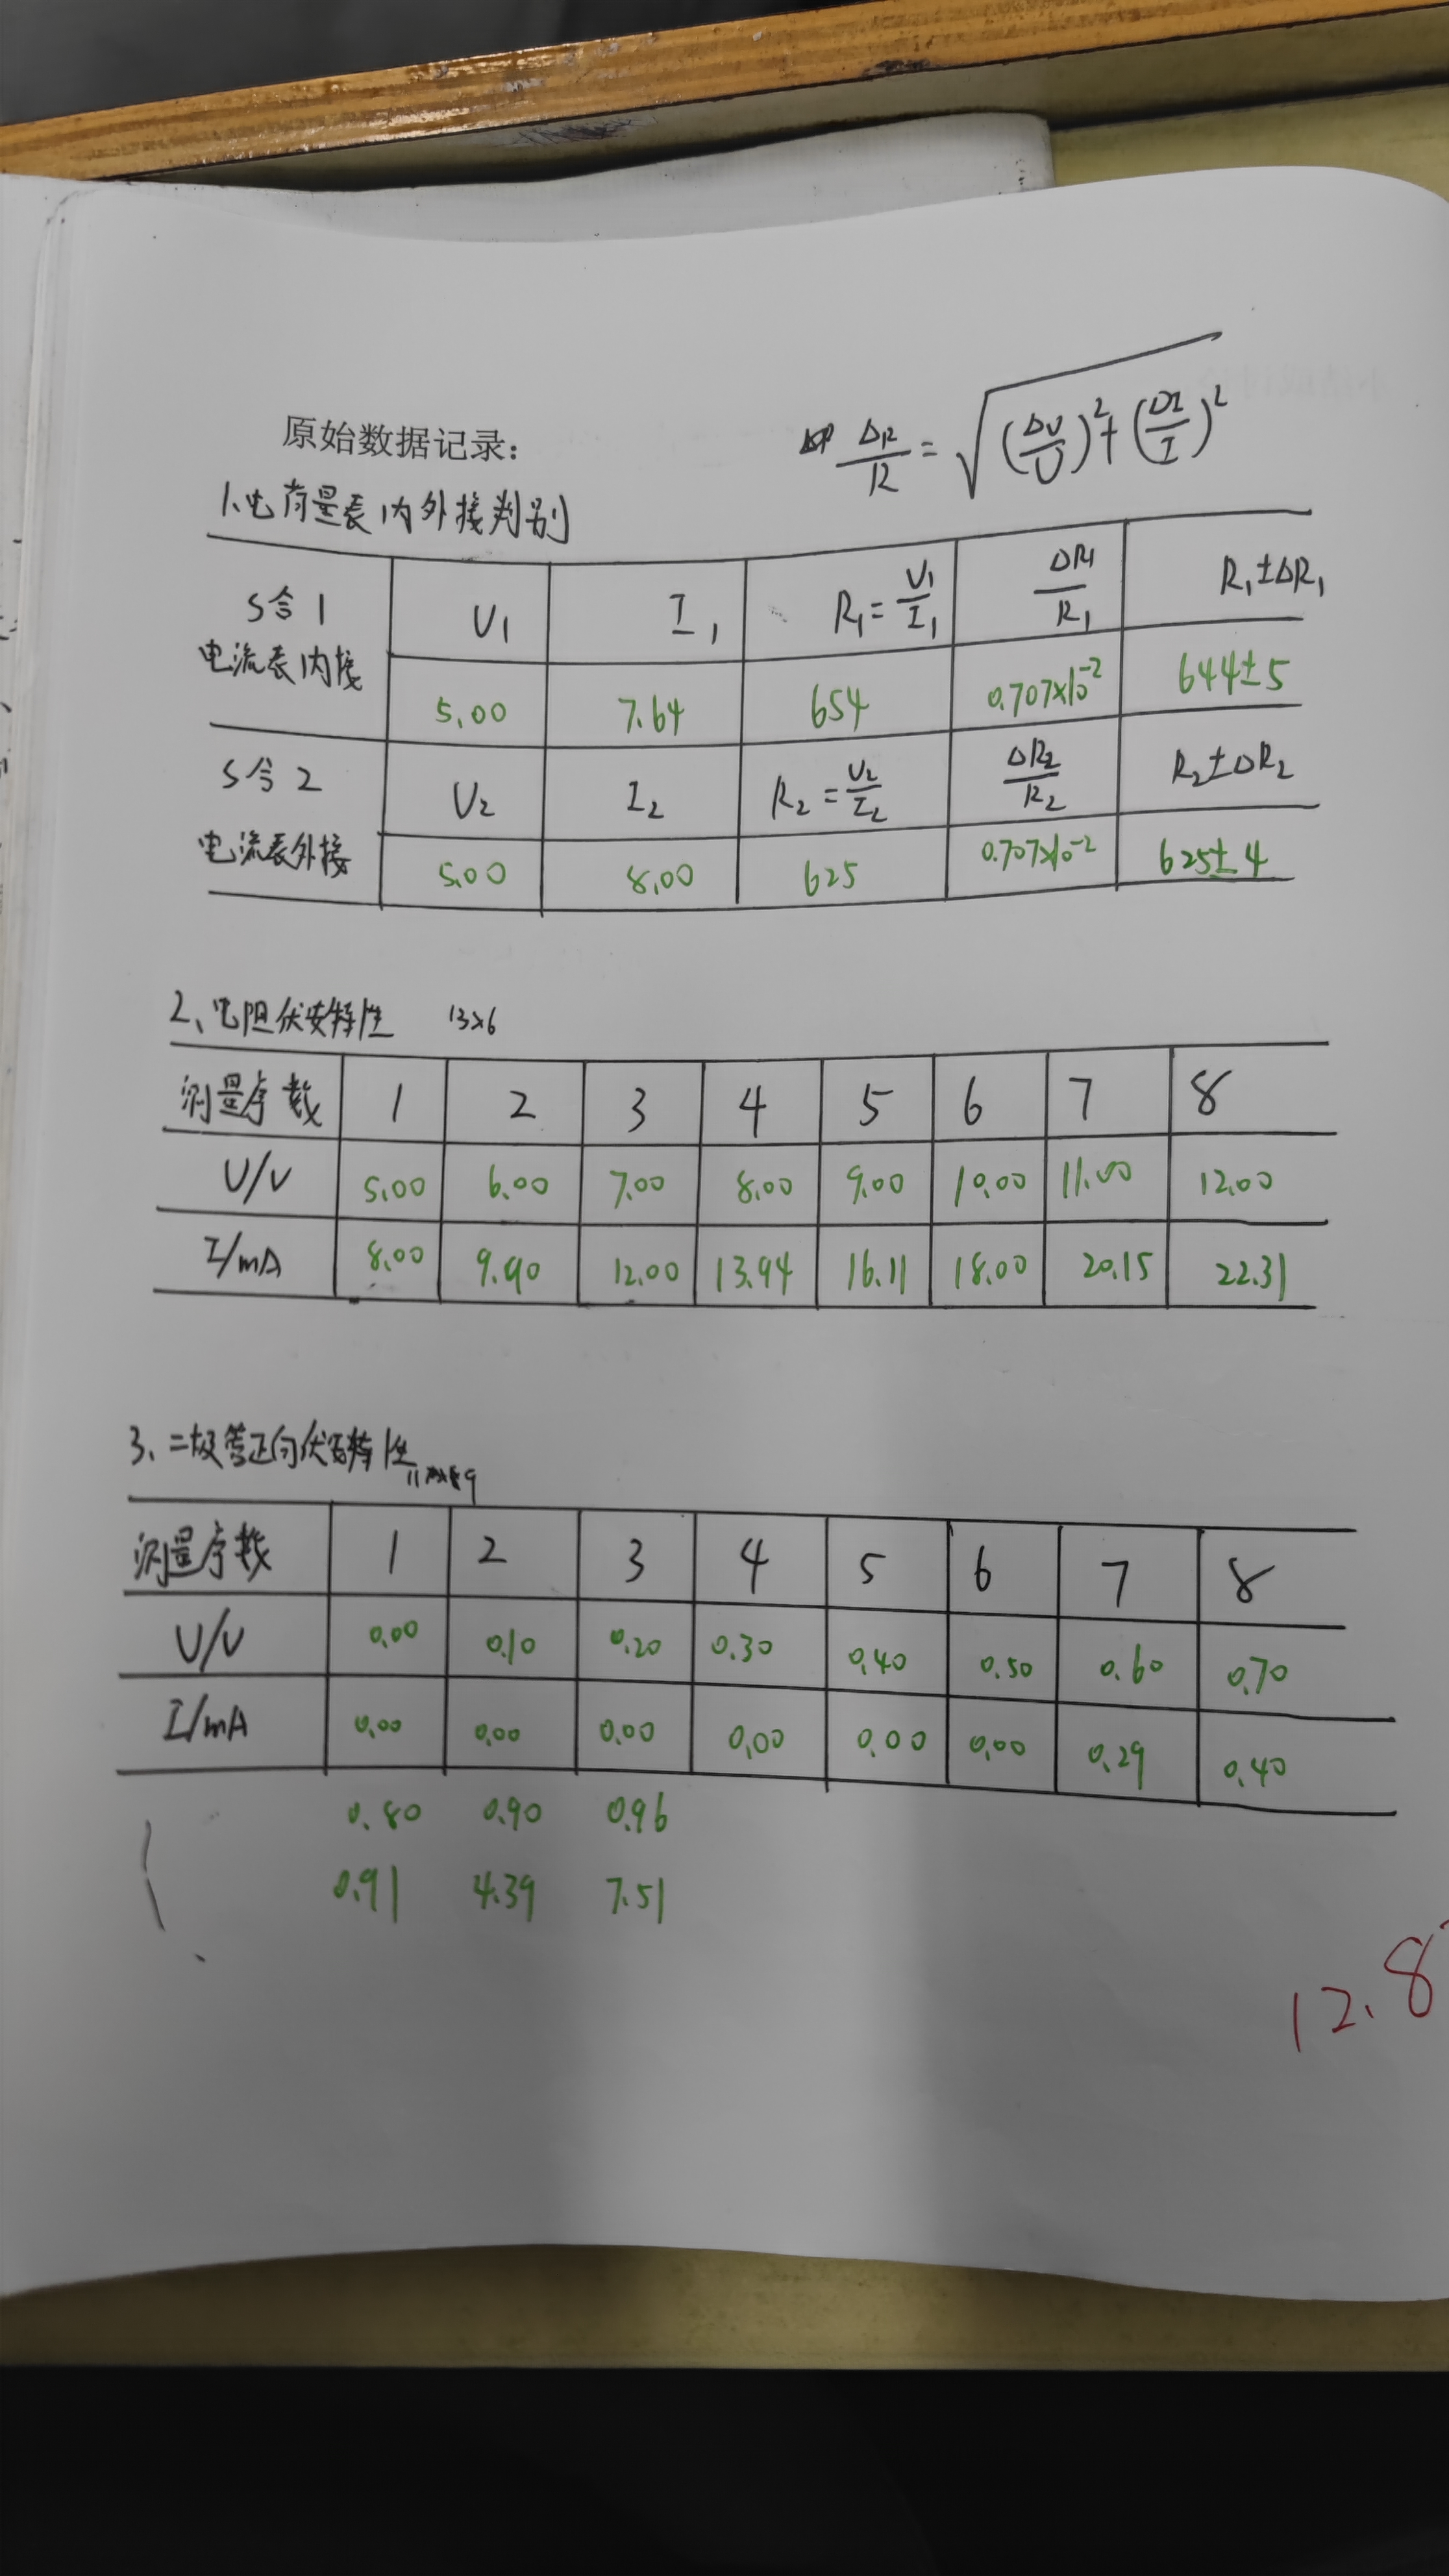 原始数据记录：
ΔR/R = √((ΔU/U)² + (ΔI/I)²)
1、电流表内外接判别
S合1 电流表内接 U₁ I₁ R₁=U₁/I₁ ΔR₁/R₁ R₁±ΔR₁
5.00 7.64 654 0.707×10⁻² 644±5
S合2 电流表外接 U₂ I₂ R₂=U₂/I₂ ΔR₂/R₂ R₂±ΔR₂
5.00 8.00 625 0.707×10⁻² 625±4
2、电阻伏安特性 13×6
测量序数 1 2 3 4 5 6 7 8
U/V 5.00 6.00 7.00 8.00 9.00 10.00 11.00 12.00
I/mA 8.00 9.90 12.00 13.94 16.11 18.00 20.15 22.31
3、二极管正向伏安特性
测量序数 1 2 3 4 5 6 7 8
U/V 0.00 0.10 0.20 0.30 0.40 0.50 0.60 0.70
I/mA 0.00 0.00 0.00 0.00 0.00 0.00 0.29 0.40
0.80 0.90 0.96
0.91 4.39 7.51
12.8